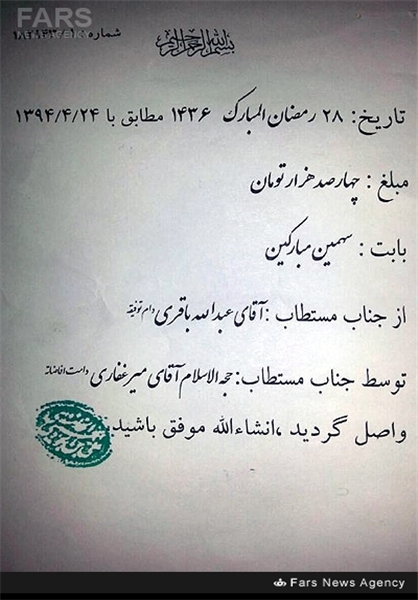 FARS
NEWS AGENCY
شماره
بسم الله الرحمن الرحیم
تاریخ: ۲۸ رمضان المبارک ۱۴۳۶ مطابق با ۱۳۹۴/۴/۲۴
مبلغ : چهارصد هزار تومان
بابت : سهمین مبارکین
از جناب مستطاب :آقای عبدالله باقری دام توفیقه
توسط جناب مستطاب: حجه الاسلام آقای میرغفاری دامت افاضاته
واصل گردید ،انشاءالله موفق باشید.
Fars News Agency